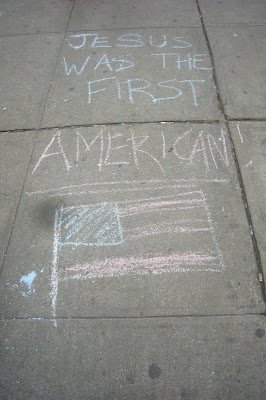 JESUS
WAS THE
FIRST
AMERICAN!